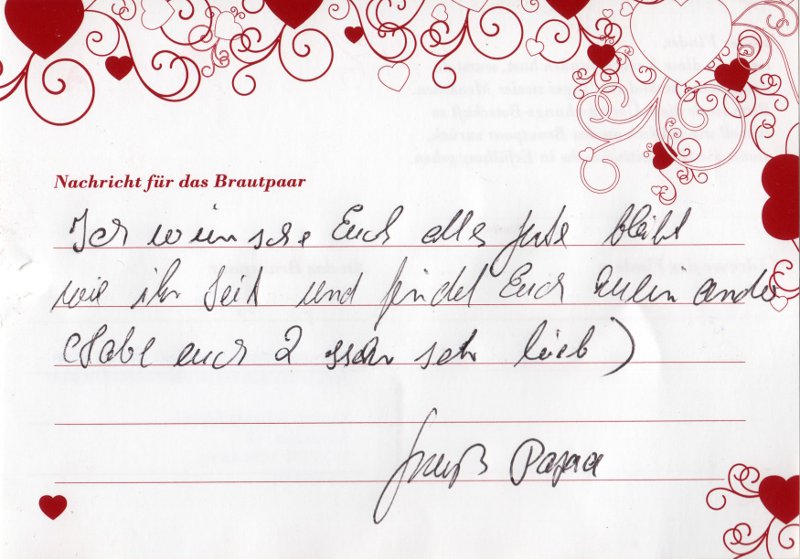 Nachricht für das Brautpaar
Ich wünsche Euch alles gute bleibt
wie ihr seit und findet Euch
(Habe euch 2 sehr lieb)
Gruß Papa